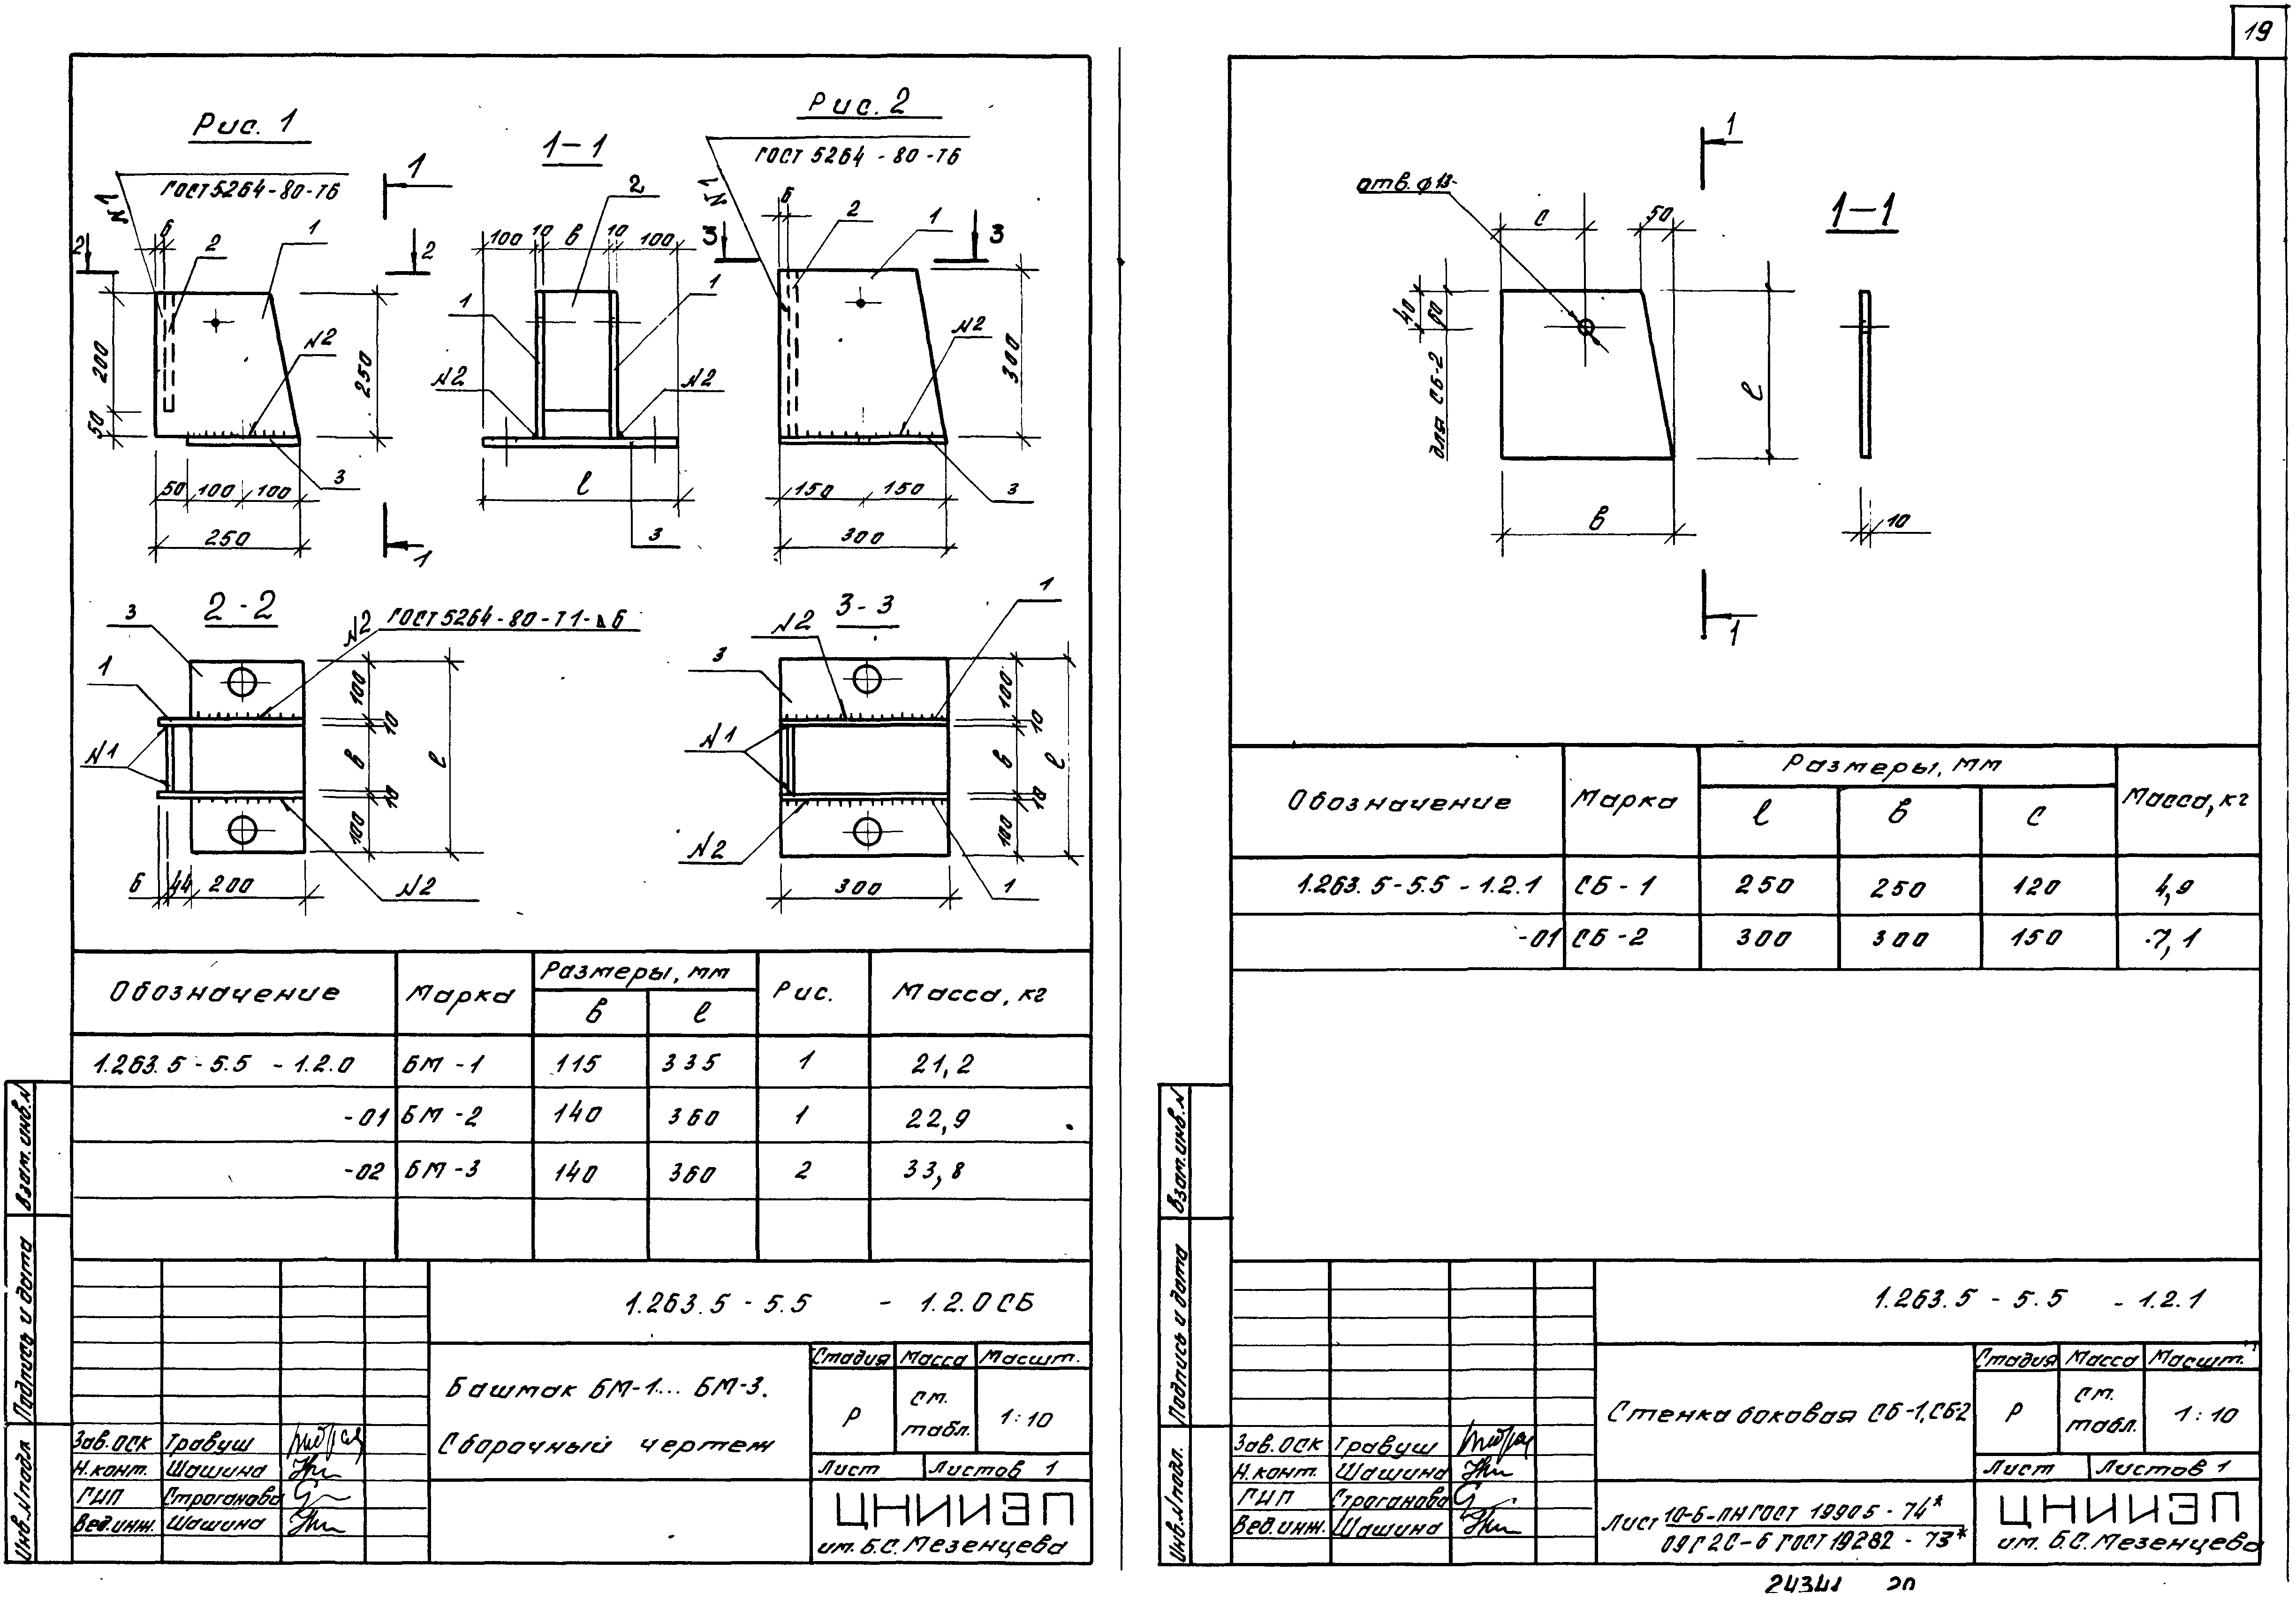 19
Рис. 1
ГОСТ 5264-80-Т6
N1
1
6
2
1
2
2
200
50
N2
250
3
50 100 100
250
1
1-1
2
100 10 в 10 100
1
1
N2
N2
l
3
Рис. 2
ГОСТ 5264-80-Т6
N1
6
2
1
3
3
N2
300
150 150
3
300
2-2
3
N2 ГОСТ 5264-80-Т1-⊿6
1
N1
100
10
в
10
100
l
6 44 200
N2
3-3
1
N2
3
N1
N2
100
10
в
10
100
l
300
1
Обозначение Марка Размеры, мм Рис. Масса, кг
в l
1.263.5-5.5 -1.2.0 БМ-1 115 335 1 21,2
-01 БМ-2 140 360 1 22,9
-02 БМ-3 140 360 2 33,8
1.263.5-5.5 - 1.2.0 СБ
Башмак БМ-1... БМ-3.
Сборочный чертеж
Стадия Масса Масшт.
Р см. табл. 1:10
Лист Листов 1
Зав.ОСК Травуш
Н.конт. Шашина
ГИП Строганова
Вед.инж. Шашина
ЦНИИЭП
им. Б.С. Мезенцева
Взам.инв.N
Подпись и дата
Инв.N подл
1
отв. ф13
с
50
40
60
для СБ-2
l
в
1
1-1
10
Обозначение Марка Размеры, мм Масса, кг
l в с
1.263.5-5.5-1.2.1 СБ-1 250 250 120 4,9
-01 СБ-2 300 300 150 7,1
1.263.5-5.5 -1.2.1
Стенка боковая СБ-1, СБ2
Стадия Масса Масшт.
Р см. табл. 1:10
Лист Листов 1
Зав.ОСК Травуш
Н.конт. Шашина
ГИП Строганова
Вед.инж. Шашина
Лист 10-Б-ПН ГОСТ 19905-74*
09Г2С-6 ГОСТ 19282-73*
ЦНИИЭП
им. Б.С. Мезенцева
Взам.инв.N
Подпись и дата
Инв.N подл.
24341 20